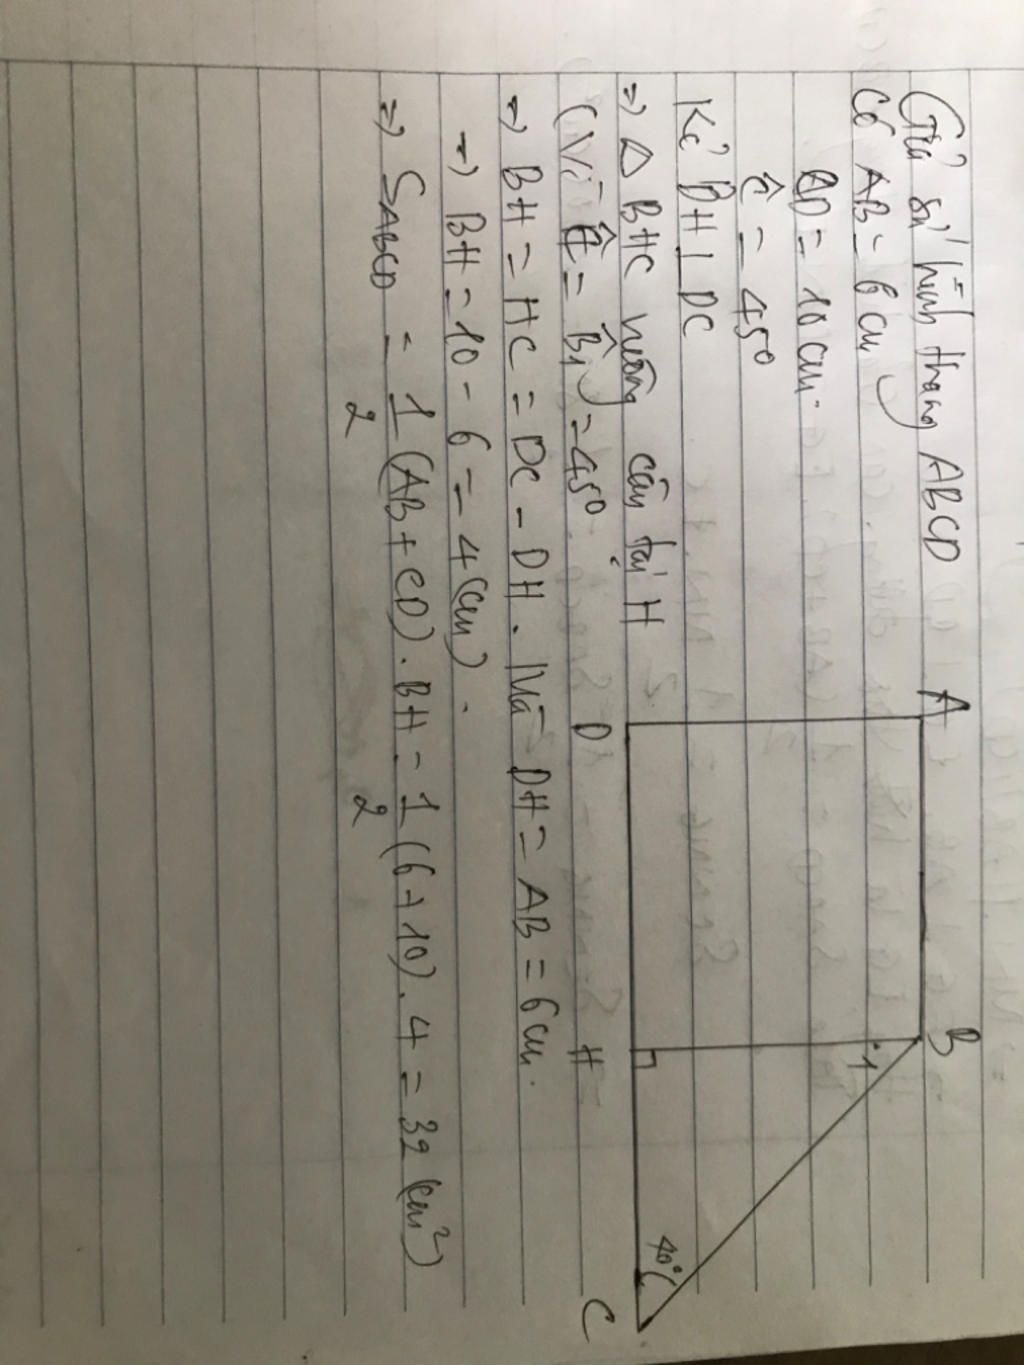 Giả sử hình thang ABCD
Có AB = 6 cm
AD = 10 cm.
Ĉ = 45°
Kẻ BH ⊥ DC
=> Δ BHC vuông cân tại H
(Vì Ĉ = B̂₁) = 45°
=> BH = HC = DC - DH. Mà DH = AB = 6 cm.
=> BH = 10 - 6 = 4 (cm).
=> S_ABCD = 1/2 (AB + CD). BH = 1/2 (6 + 10). 4 = 32 (cm²)
A
B
1
D
H
40°
C